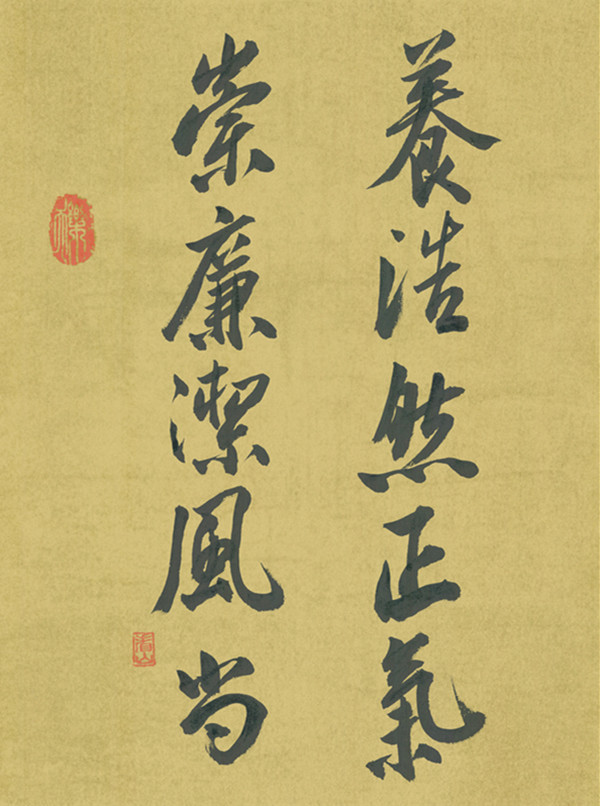 養浩然正氣
崇廉潔風尚